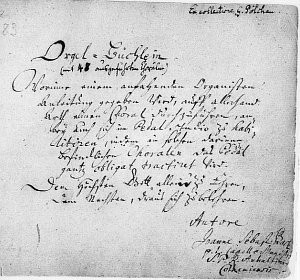 Ex collectione G. Pölchau
83
Orgel-Büchlein
(mit 48 ausgeführten Chorälen)
Worinne einem anfahenden Organisten
Anleitung gegeben wird, auff allerhand
Arth einen Choral durchzuführen, an-
bey auch sich im Pedal studio zu habi-
litiren, indem in solchen darinne
befindlichen Choralen das Pedal
gantz obligat tractiret wird.
Dem Höchsten Gott allein zu Ehren,
Dem Nechsten, draus sich zu belehren.
Autore
Joanne Sebast. Bach
p. t. Capellæ Magistri
S. P. R. Anhaltini-
Cotheniensis.